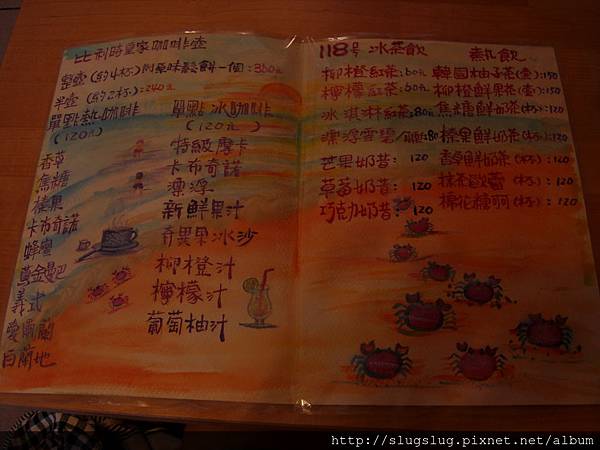 比利時皇家咖啡壺
整壺(約4杯)附原味鬆餅一個:350元
半壺(約2杯):240元
單點熱咖啡
(120元)
香草
焦糖
榛果
卡布奇諾
蜂蜜
黃金曼巴
義式
愛爾蘭
白蘭地
單點冰咖啡
(120元)
特級摩卡
卡布奇諾
漂浮
新鮮果汁
奇異果冰沙
柳橙汁
檸檬汁
葡萄柚汁
118号 冰茶飲
柳橙紅茶:80元
檸檬紅茶:80元
冰淇淋紅茶:80元
漂浮雪碧/可樂:80
芒果奶昔: 120
草莓奶昔: 120
巧克力奶昔: 120
熱飲
韓國柚子茶(壺):150
柳橙鮮果茶(壺):150
焦糖鮮奶茶(杯):120
榛果鮮奶茶(杯):120
香草鮮奶茶(杯):120
抹茶歐蕾(杯): 120
棉花糖可可(杯): 120
http://slugslug.pixnet.net/album